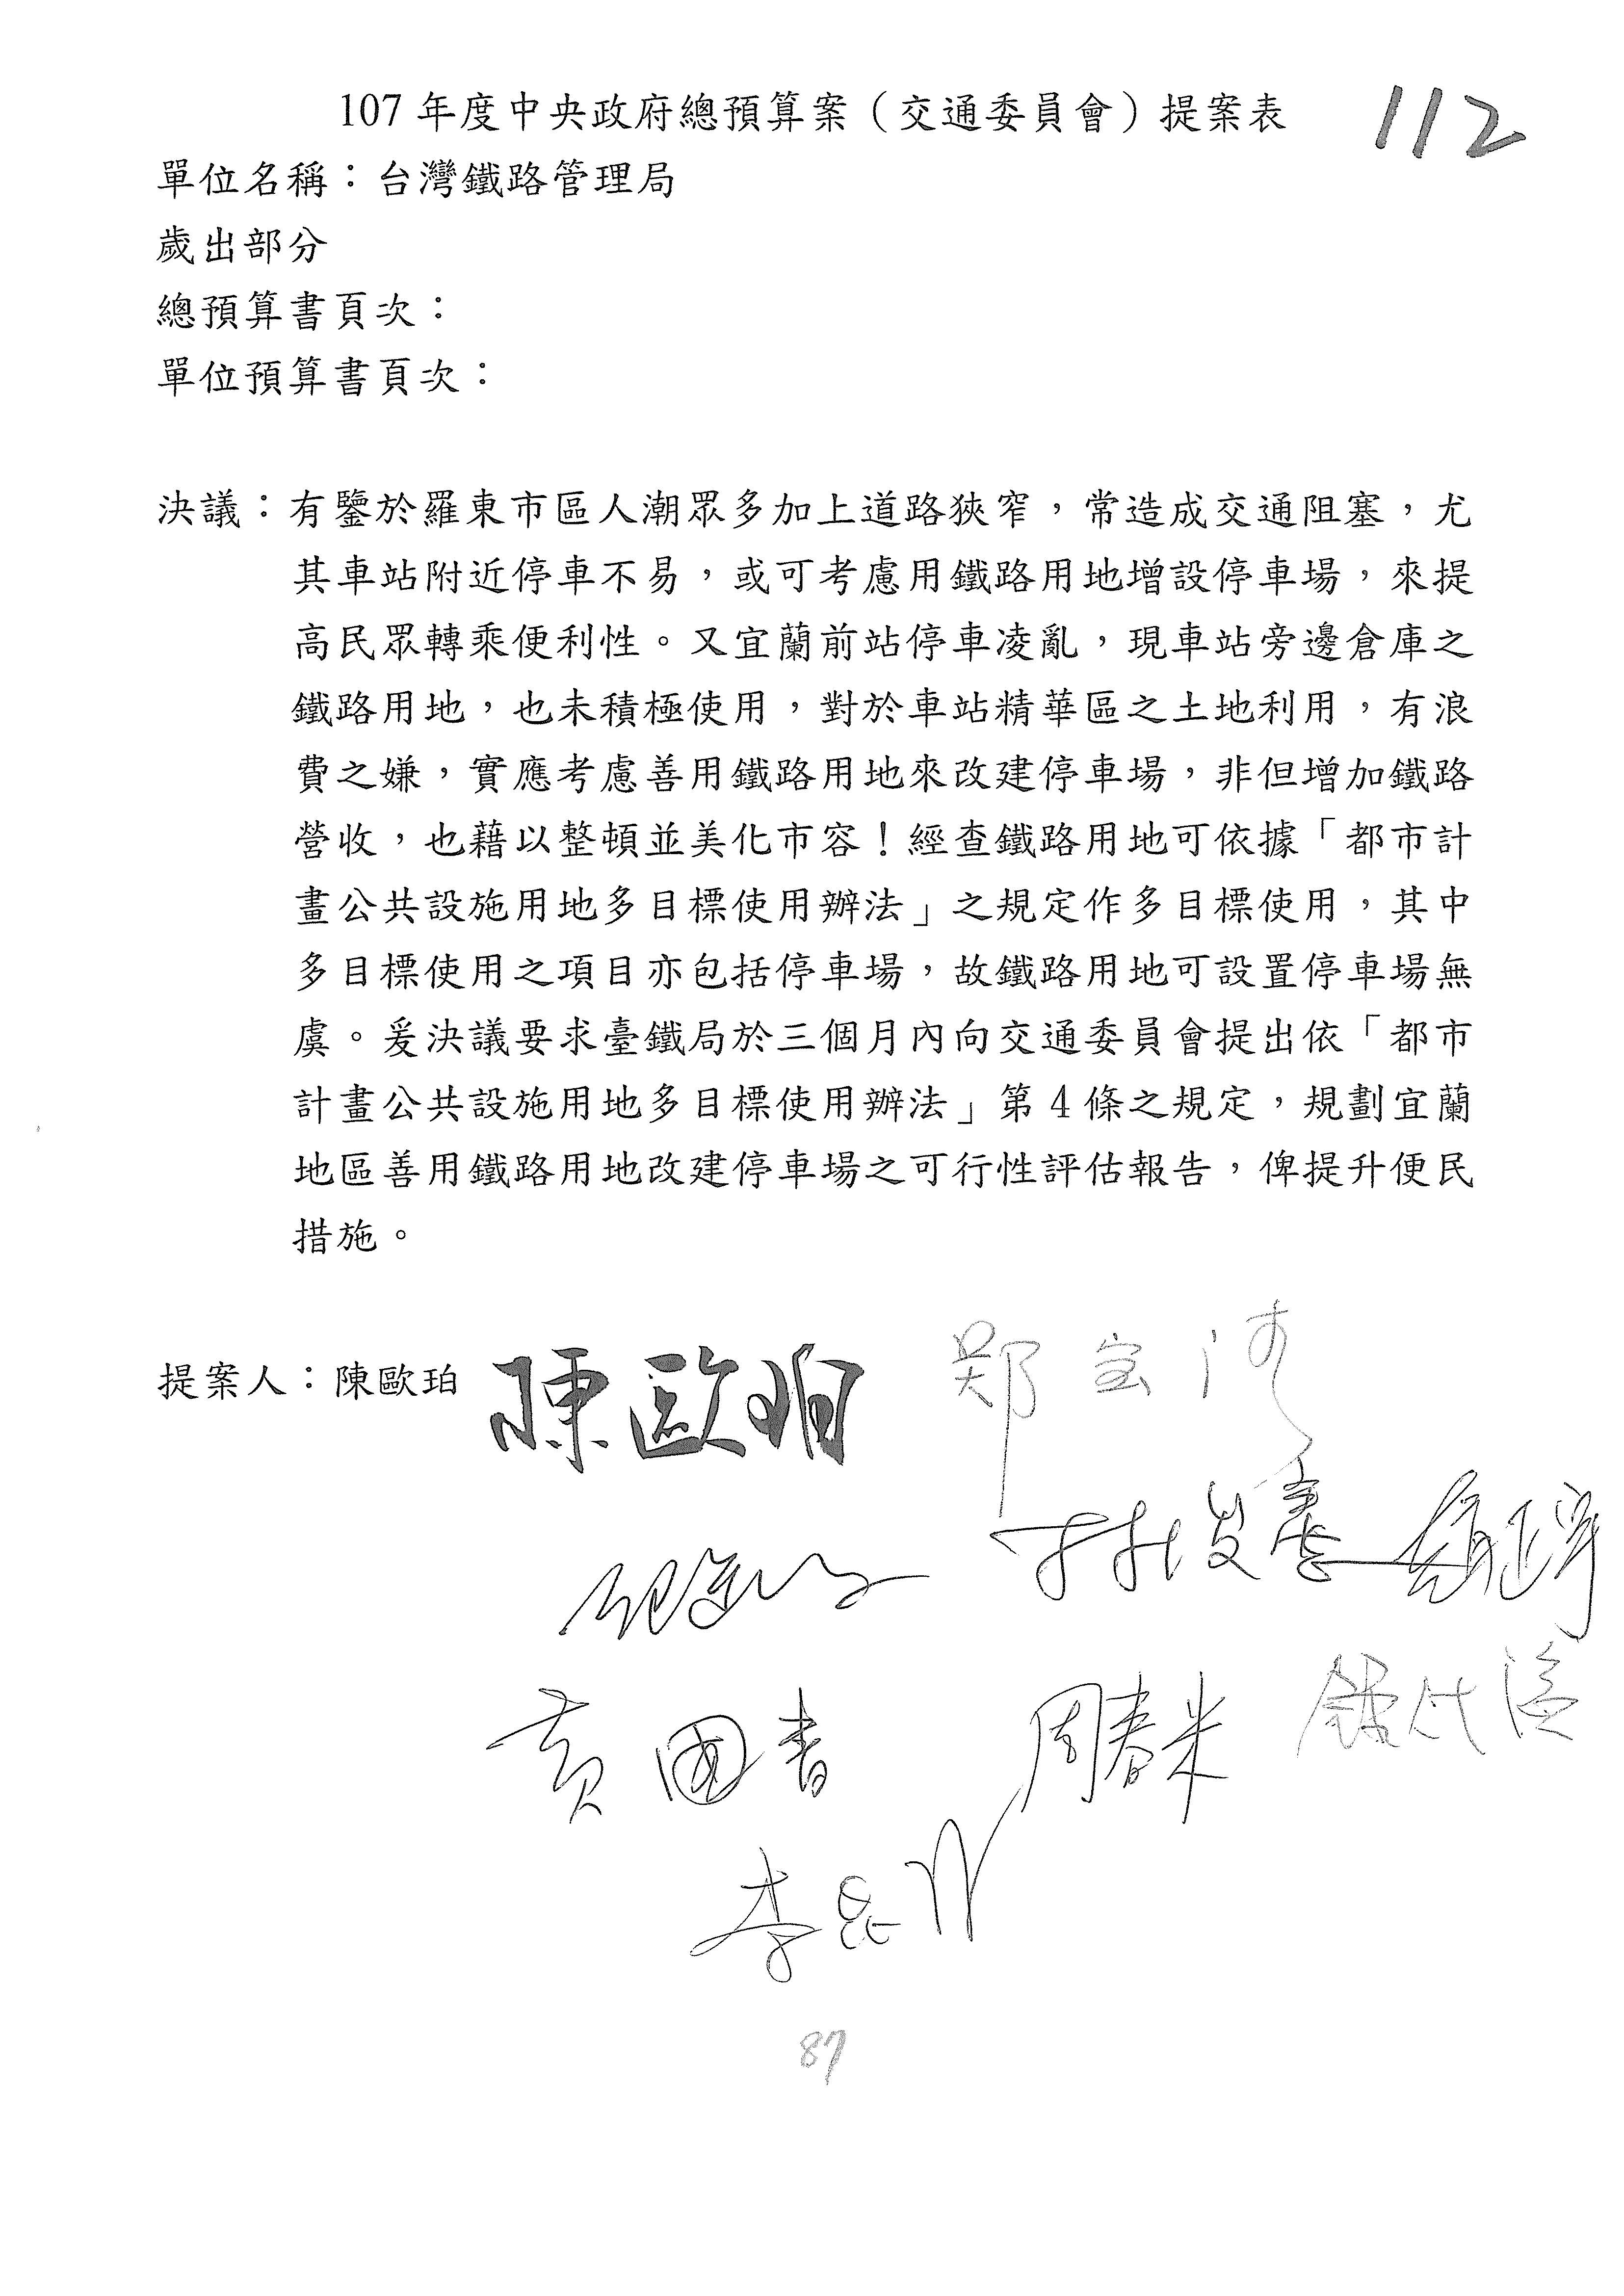 107 年度中央政府總預算案（交通委員會）提案表
112
單位名稱：台灣鐵路管理局
歲出部分
總預算書頁次：
單位預算書頁次：
決議：有鑒於羅東市區人潮眾多加上道路狹窄，常造成交通阻塞，尤
其車站附近停車不易，或可考慮用鐵路用地增設停車場，來提
高民眾轉乘便利性。又宜蘭前站停車凌亂，現車站旁邊倉庫之
鐵路用地，也未積極使用，對於車站精華區之土地利用，有浪
費之嫌，實應考慮善用鐵路用地來改建停車場，非但增加鐵路
營收，也藉以整頓並美化市容！經查鐵路用地可依據「都市計
畫公共設施用地多目標使用辦法」之規定作多目標使用，其中
多目標使用之項目亦包括停車場，故鐵路用地可設置停車場無
虞。爰決議要求臺鐵局於三個月內向交通委員會提出依「都市
計畫公共設施用地多目標使用辦法」第 4 條之規定，規劃宜蘭
地區善用鐵路用地改建停車場之可行性評估報告，俾提升便民
措施。
提案人：陳歐珀 陳歐珀 鄭宝清
林俊憲
黃國書 周春米
李昆
87